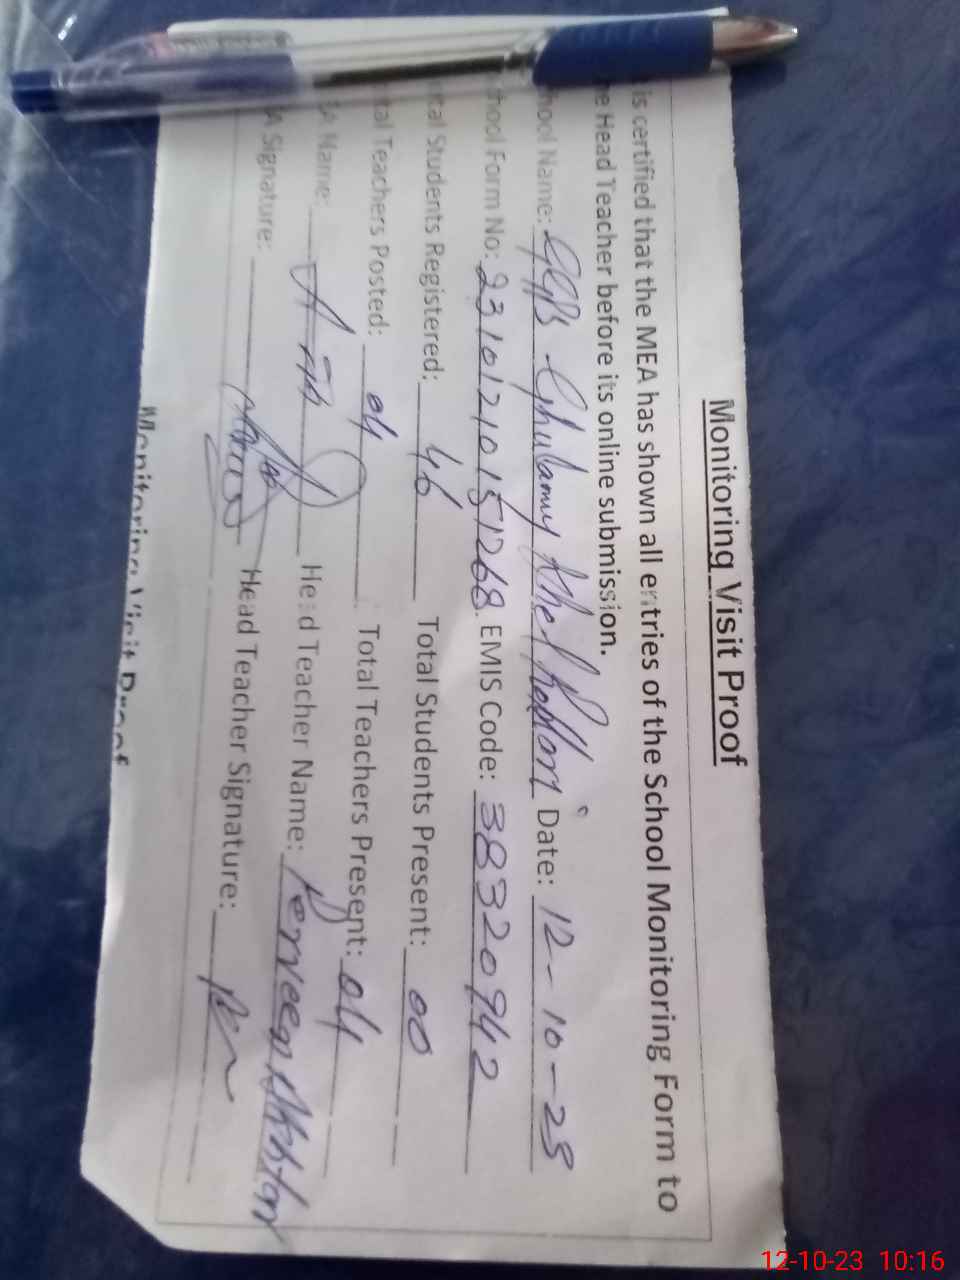 Monitoring Visit Proof
is certified that the MEA has shown all entries of the School Monitoring Form to
e Head Teacher before its online submission.
hool Name: GGPS Ghulamu Date: 12-10-23
hool Form No: 23101210151268. EMIS Code: 38320942
tal Students Registered: 46 Total Students Present: 00
tal Teachers Posted: 04 Total Teachers Present: 04
A Name: Head Teacher Name: Perveen Akhtar
A Signature: Head Teacher Signature:
Monitoring Visit Proof
12-10-23 10:16